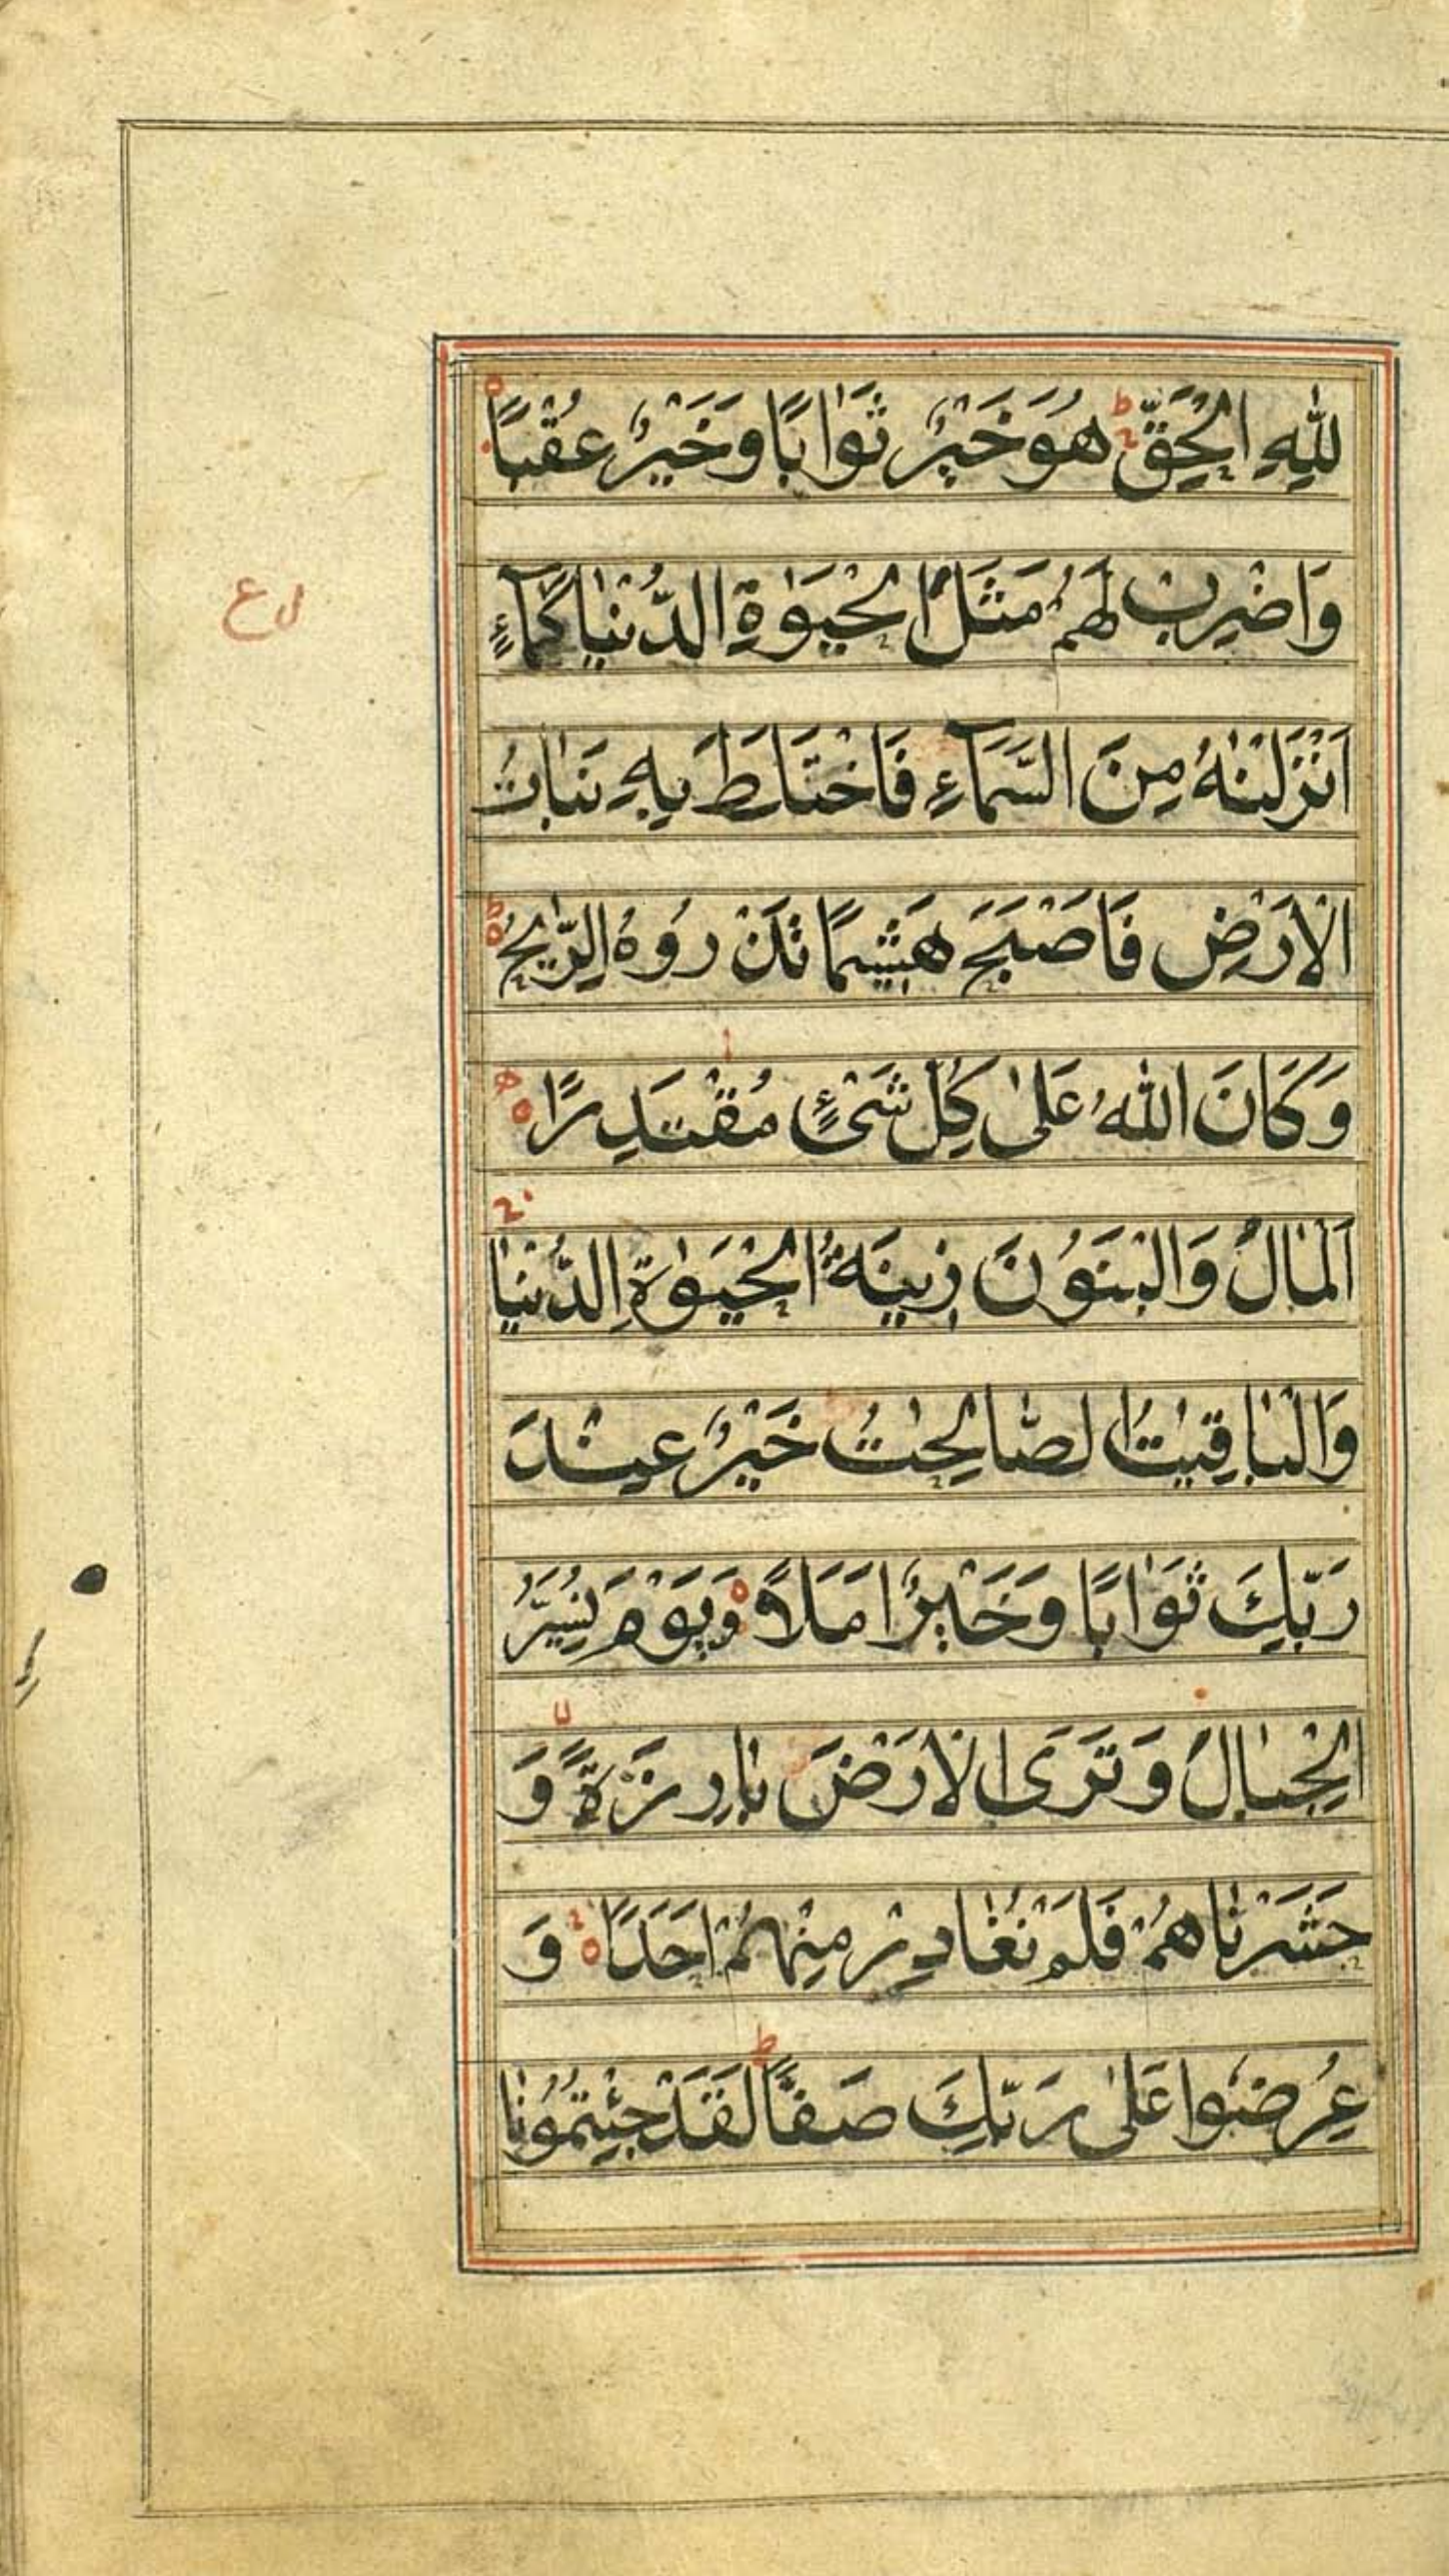 لِلّٰهِ الْحَقِّ ط هُوَ خَيْرٌ ثَوَابًا وَخَيْرٌ عُقْبًا
وَاضْرِبْ لَهُمْ مَثَلَ الْحَيٰوةِ الدُّنْيَا كَمَآءٍ
اَنْزَلْنٰهُ مِنَ السَّمَآءِ فَاخْتَلَطَ بِهٖ نَبَاتُ
الْاَرْضِ فَاَصْبَحَ هَشِيْمًا تَذْرُوْهُ الرِّيٰحُ ط
وَكَانَ اللّٰهُ عَلٰى كُلِّ شَيْءٍ مُقْتَدِرًا
اَلْمَالُ وَالْبَنُوْنَ زِيْنَةُ الْحَيٰوةِ الدُّنْيَا
وَالْبَاقِيٰتُ الصَّالِحٰتُ خَيْرٌ عِنْدَ
رَبِّكَ ثَوَابًا وَخَيْرٌ اَمَلًا وَيَوْمَ نُسَيِّرُ
الْجِبَالَ وَتَرَى الْاَرْضَ بَارِزَةً وَ
حَشَرْنَاهُمْ فَلَمْ نُغَادِرْ مِنْهُمْ اَحَدًا وَ
عُرِضُوْا عَلٰى رَبِّكَ صَفًّا ط لَقَدْ جِئْتُمُوْنَا